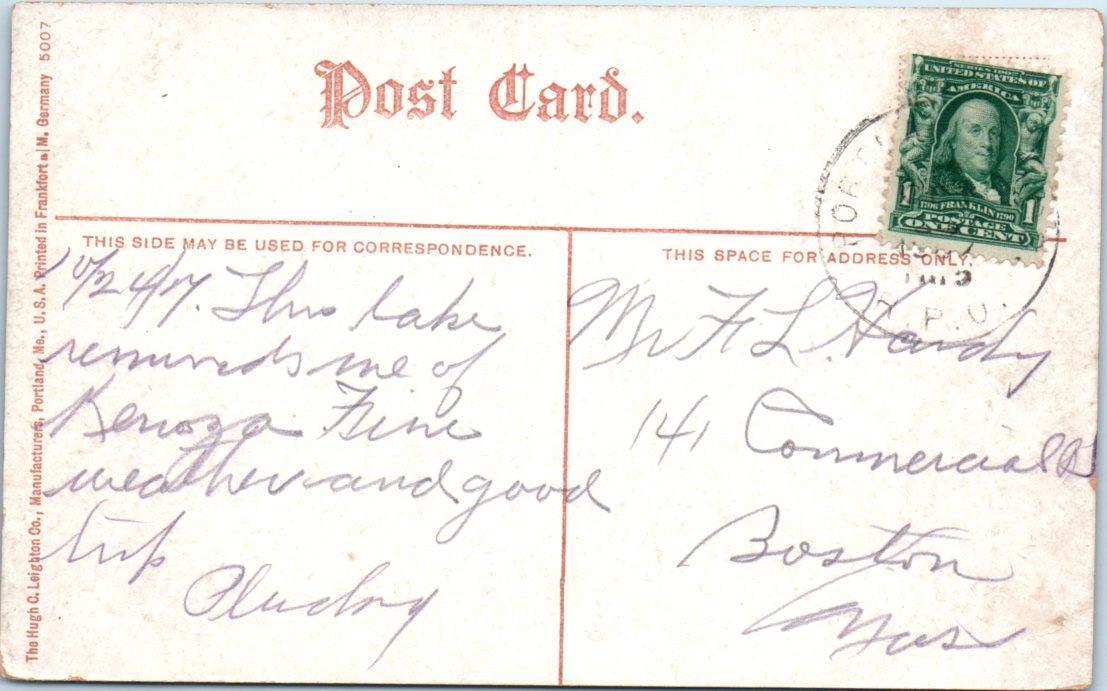 Post Card.
THIS SIDE MAY BE USED FOR CORRESPONDENCE.
10/24/07. This lake
reminds me of
Kenoza Fine
weather and good
trip
THIS SPACE FOR ADDRESS ONLY.
Mr F L Hardy
141 Commercial St
Boston
Mas
SERIES 1902
UNITED STATES OF
AMERICA
1 1
1706 FRANKLIN 1790
POSTAGE
ONE CENT
R.P.O.
The Hugh C. Leighton Co., Manufacturers, Portland, Me., U.S.A. Printed in Frankfort a/M. Germany 5007